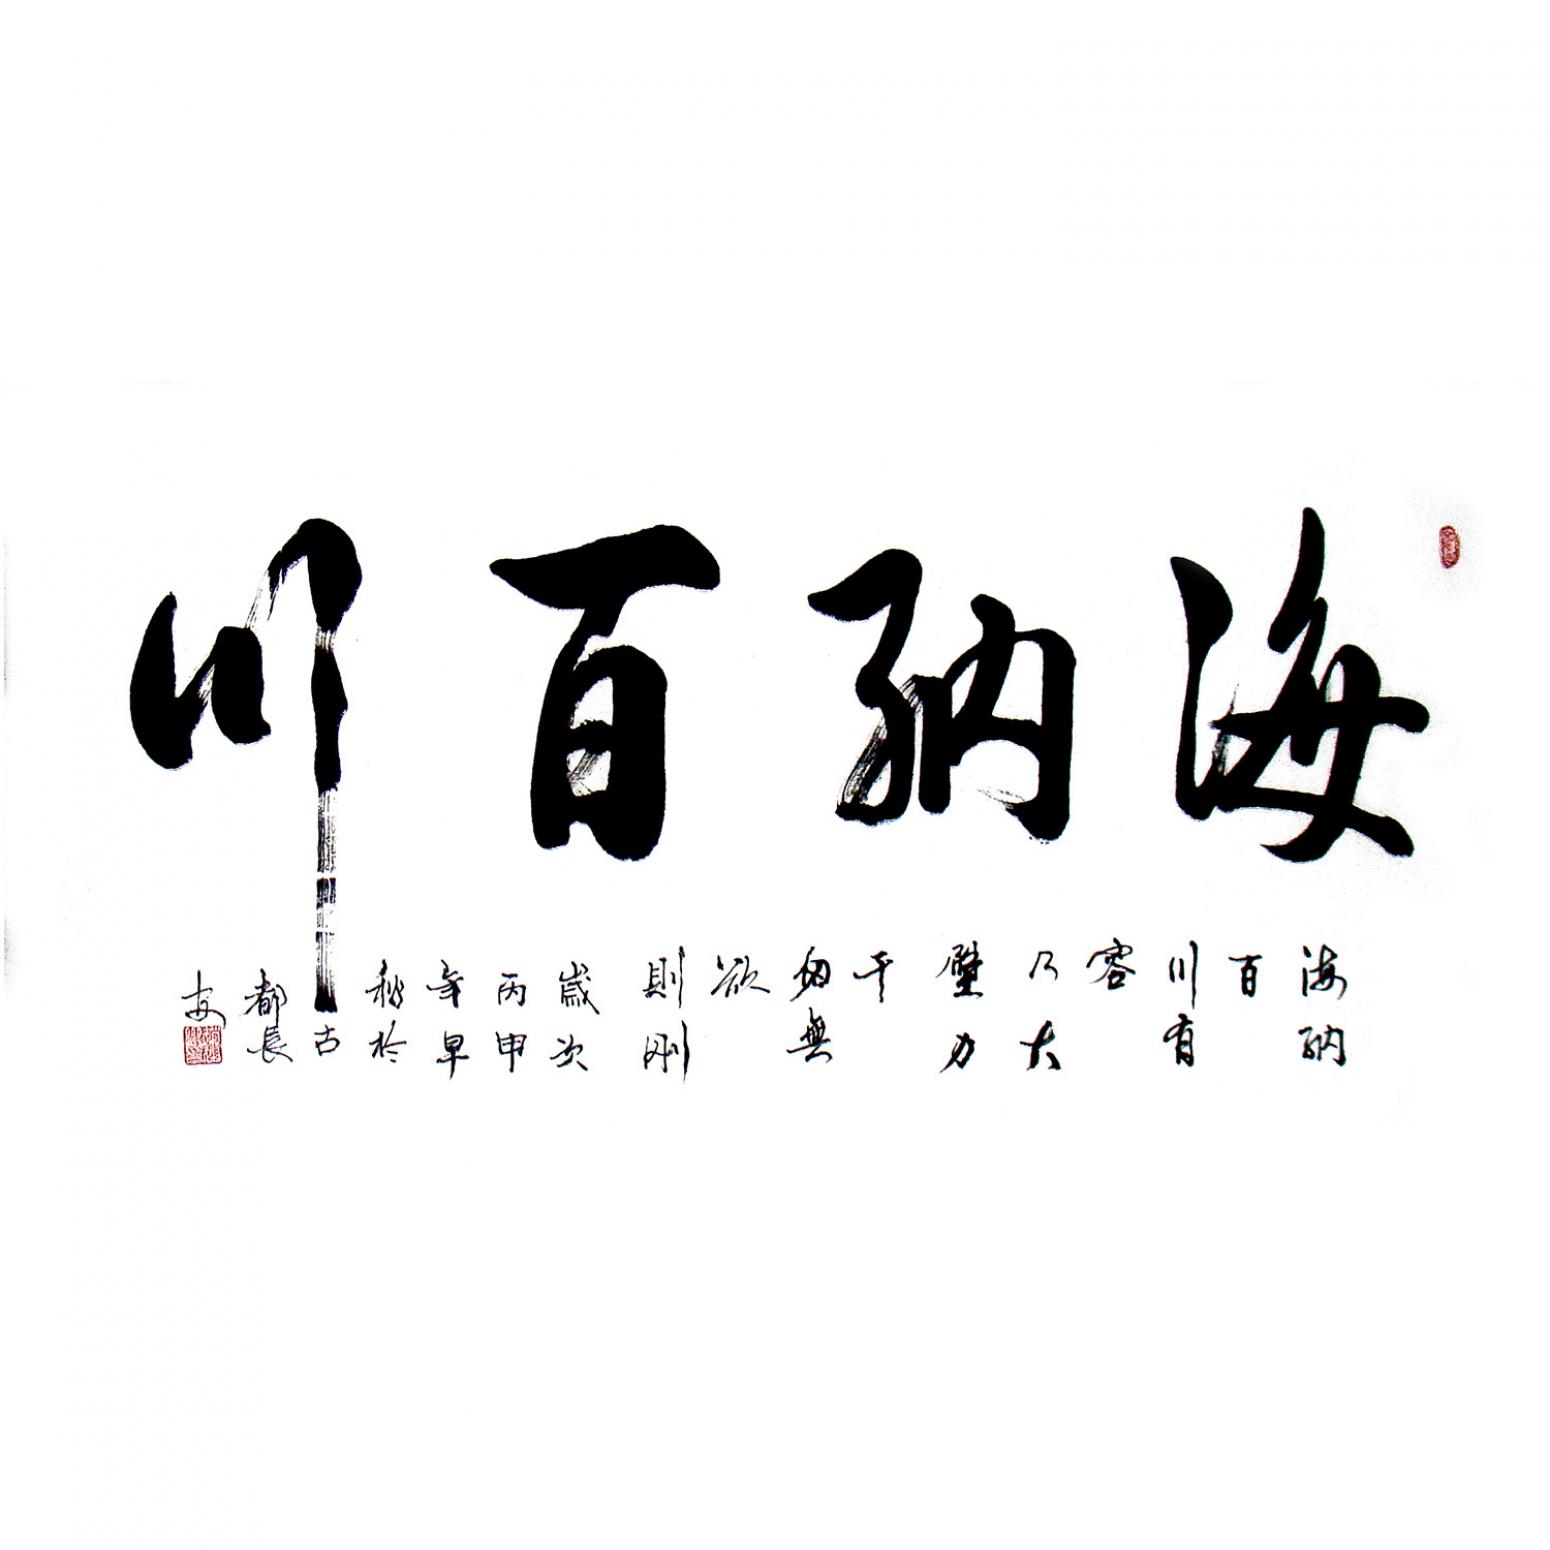 海納百川
海納
百
川有
容
乃大
壁力
千
仞無
欲
則剛
歲次
丙申
年早
秋於
古
都長
安